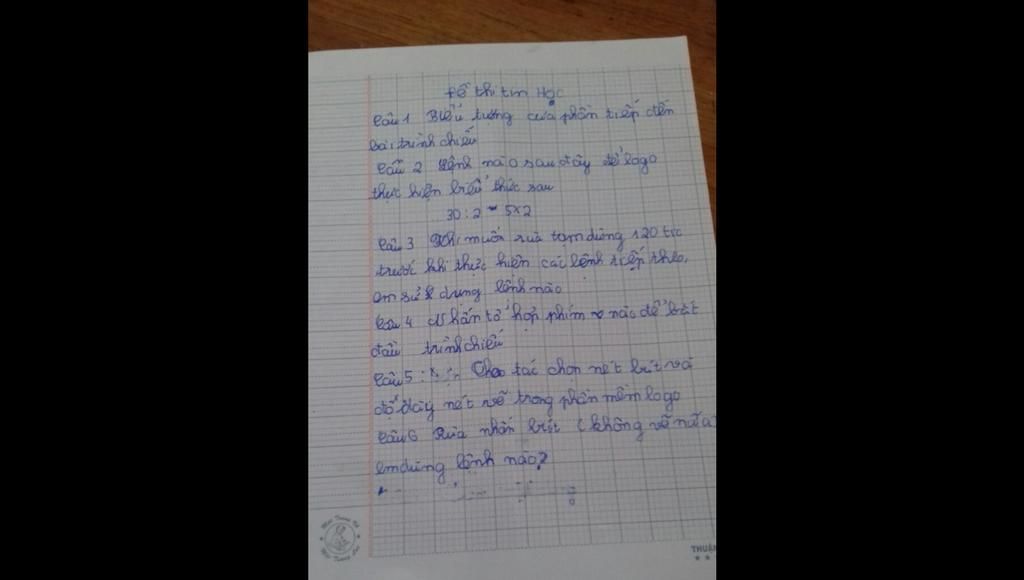 Đề thi tin Học
Câu 1 Biểu tượng của phần tiếp đến
bài trình chiếu
Câu 2 Lệnh nào sau đây để logo
thực hiện biểu thức sau
30 : 2 - 5x2
Câu 3 Khi muốn rùa tạm dừng 120 tíc
trước khi thực hiện các lệnh tiếp theo,
em sử dụng lệnh nào
Câu 4 Nhấn tổ hợp phím nào để bắt
đầu trình chiếu
Câu 5 : Thao tác chọn nét bút và
độ dày nét vẽ trong phần mềm logo
Câu 6 Rùa nhấc bút (không vẽ nữa)
em dùng lệnh nào?
THUẬN